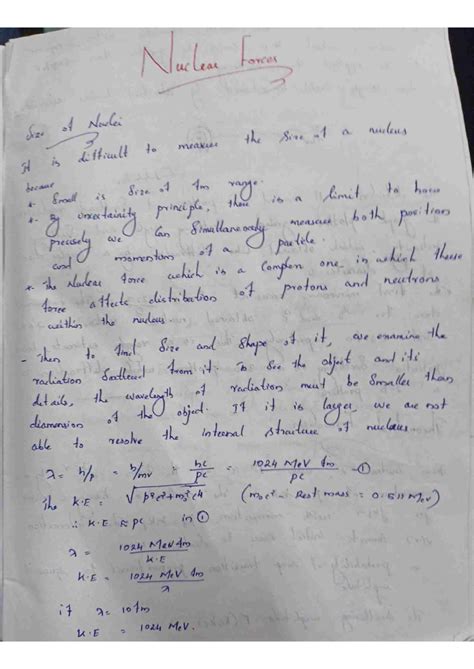 Nuclear Forces
Size of Nuclei
It is difficult to measure the size of a nucleus
because
* Small is size of fm range.
* By uncertainity principle, there is a limit to how
precisely we can simultaneously measure both position
and momentum of a particle.
* The Nuclear force which is a complex one in which these
force affects distribution of protons and neutrons
within the nucleus
- Then to find size and shape of it, we examine the
radiation scattered from it. To see the object and its
details, the wavelength of radiation must be smaller than
diamension of the object. If it is larger, we are not
able to resolve the internal structure of nucleus.
λ = h/p = h/mv = hc/pc = 1024 MeV fm/pc - ①
The K.E = √p²c²+m₀²c⁴ (m₀c² - Rest mass = 0.511 MeV)
∴ K.E ≈ pc in ①
λ = 1024 MeV fm/K.E
K.E = 1024 MeV fm/λ
if λ = 10fm
K.E = 1024 MeV.